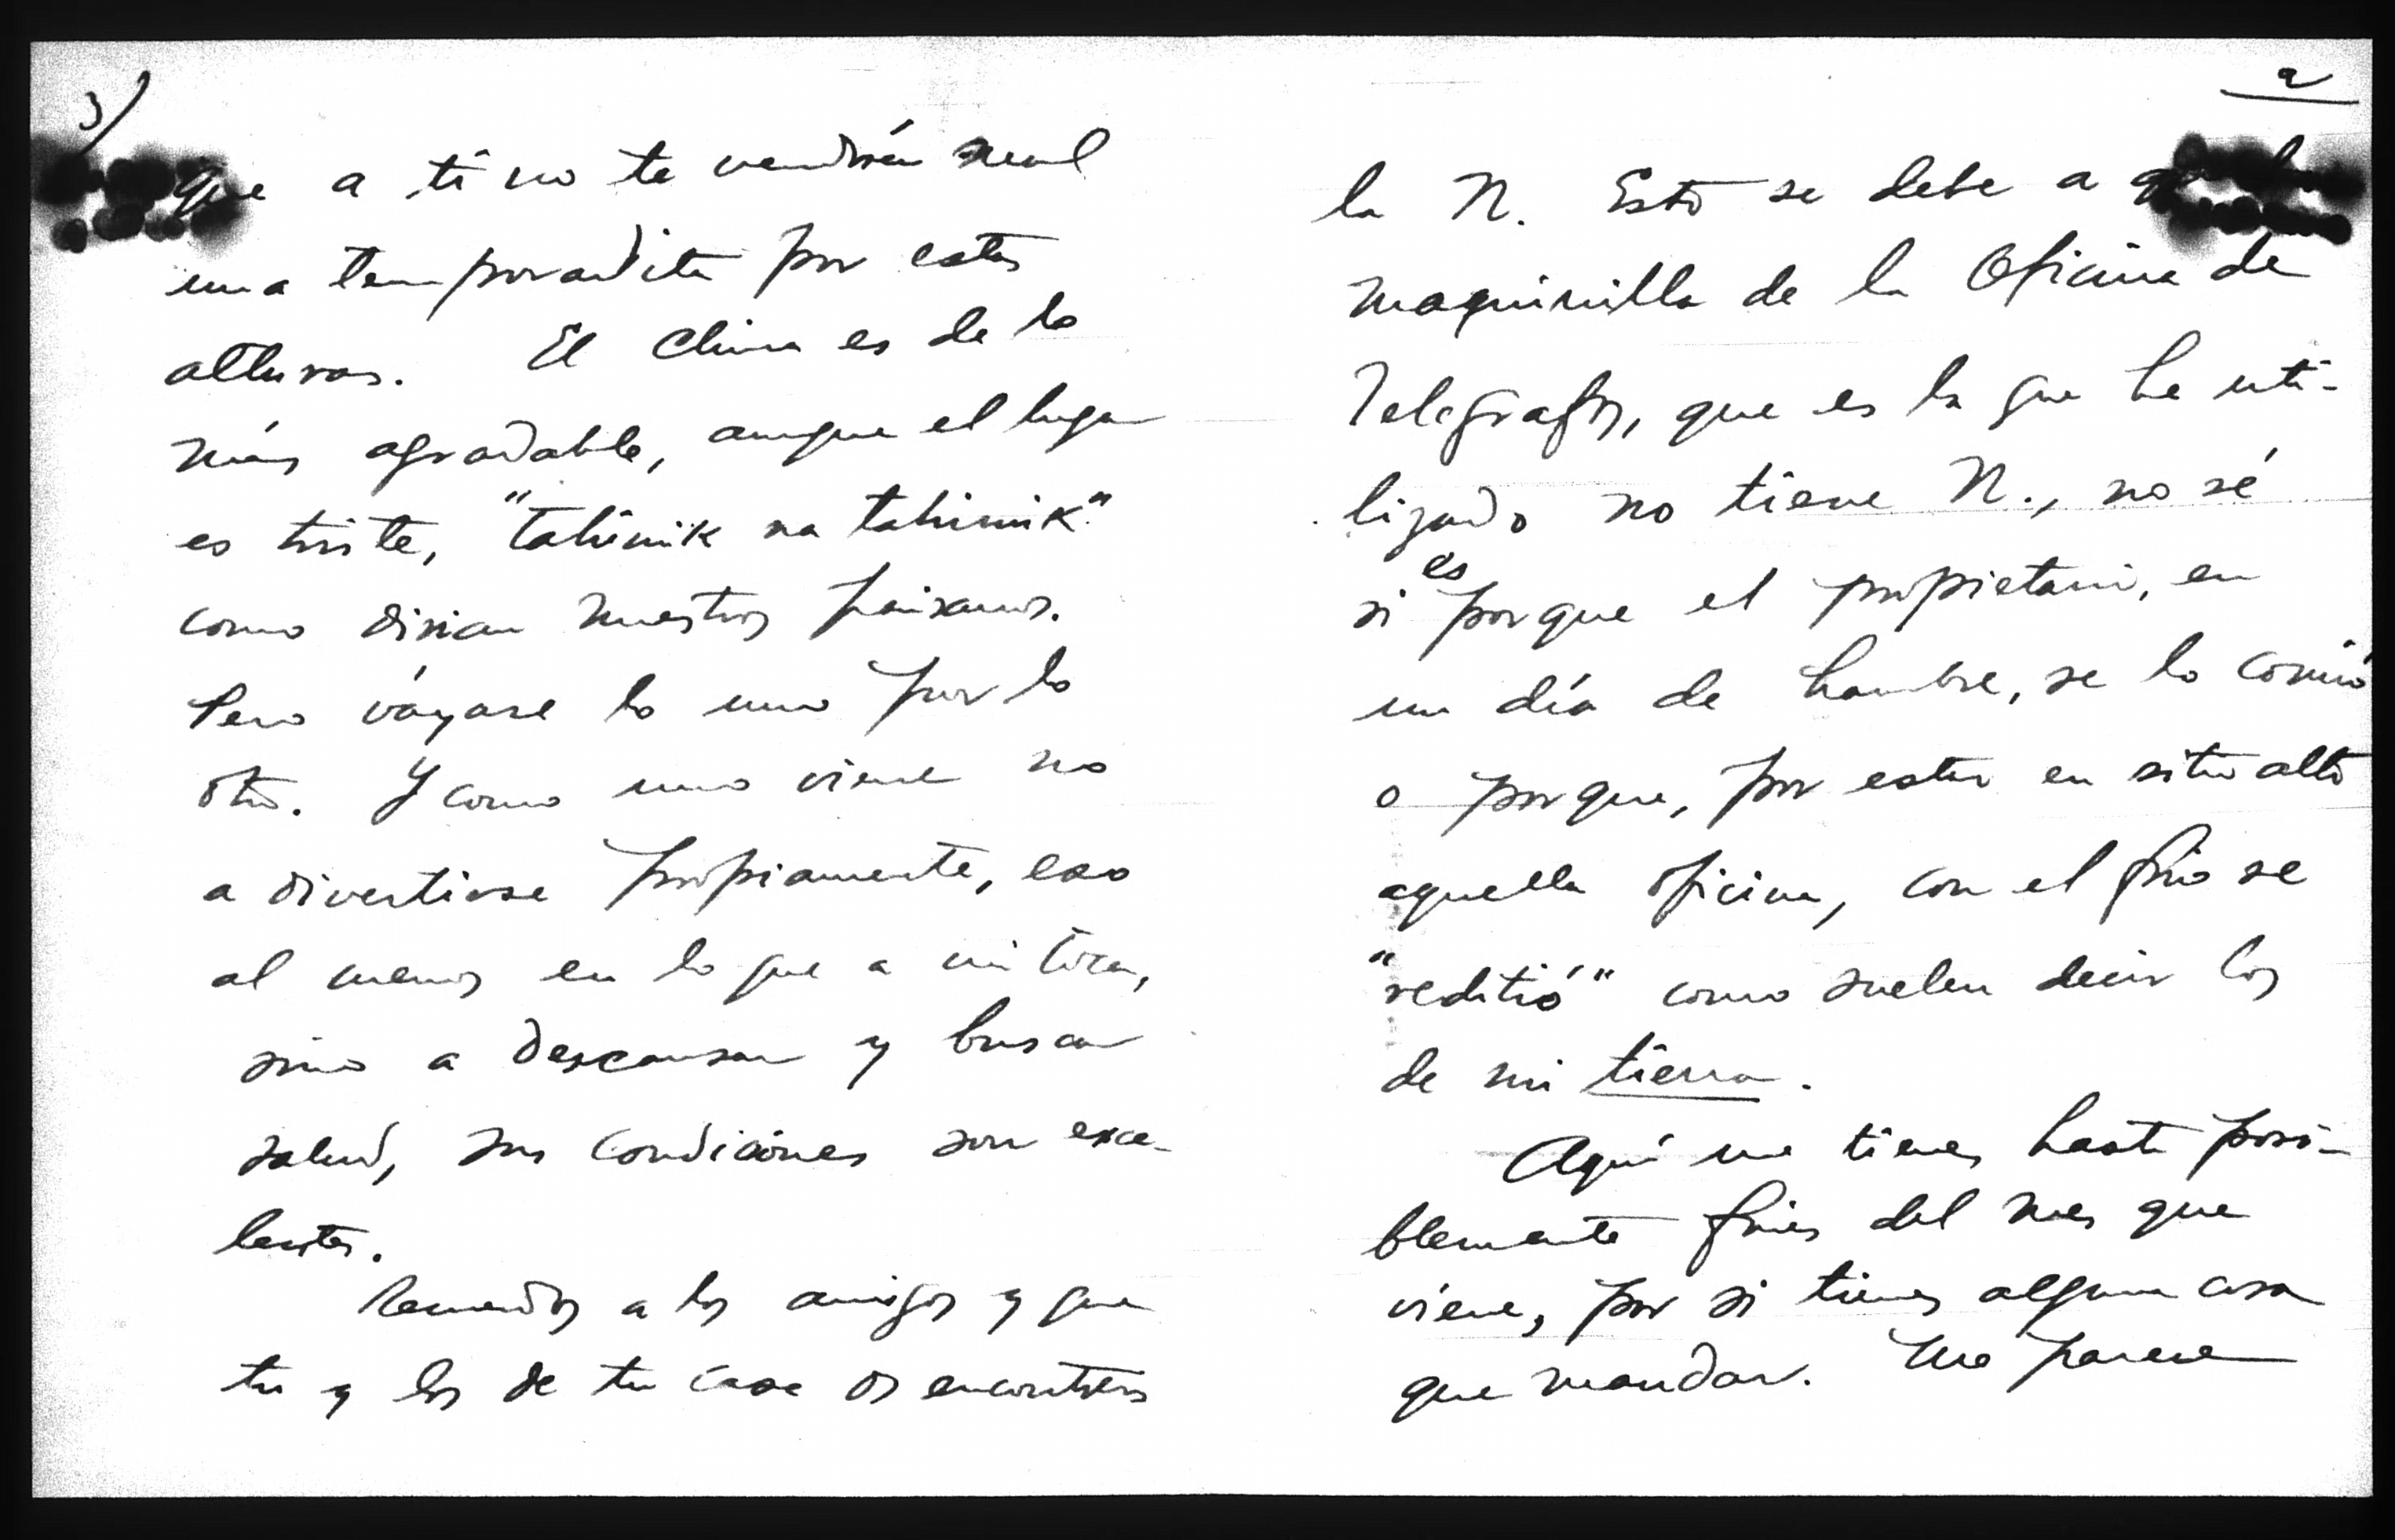 2
la N. Esto se debe a que la
maquinilla de la Oficina de
Telégrafos, que es la que he uti-
lizado no tiene N., no sé
si es porque el propietario, en
un día de hambre, se lo comió
o porque, por estar en sitio alto
aquella oficina, con el frío se
"reditió" como suelen decir los
de mi tierra.
Aquí me tienes hasta posi-
blemente fines del mes que
viene, por si tienes alguna cosa
que mandar. Me parece
3/
que a ti no te vendrá mal
una temporadita por estas
alturas. El clima es de lo
más agradable, aunque el lugar
es triste, "tahimik na tahimik"
como dirian nuestros paisanos.
Pero váyase lo uno por lo
otro. Y como uno viene no
a divertirse propiamente, eso
al menos en lo que a mi toca,
sino a descansar y buscar
salud, sus condiciones son exce-
lentes.
Recuerdos a los amigos y que
tu y los de tu casa os encontreis